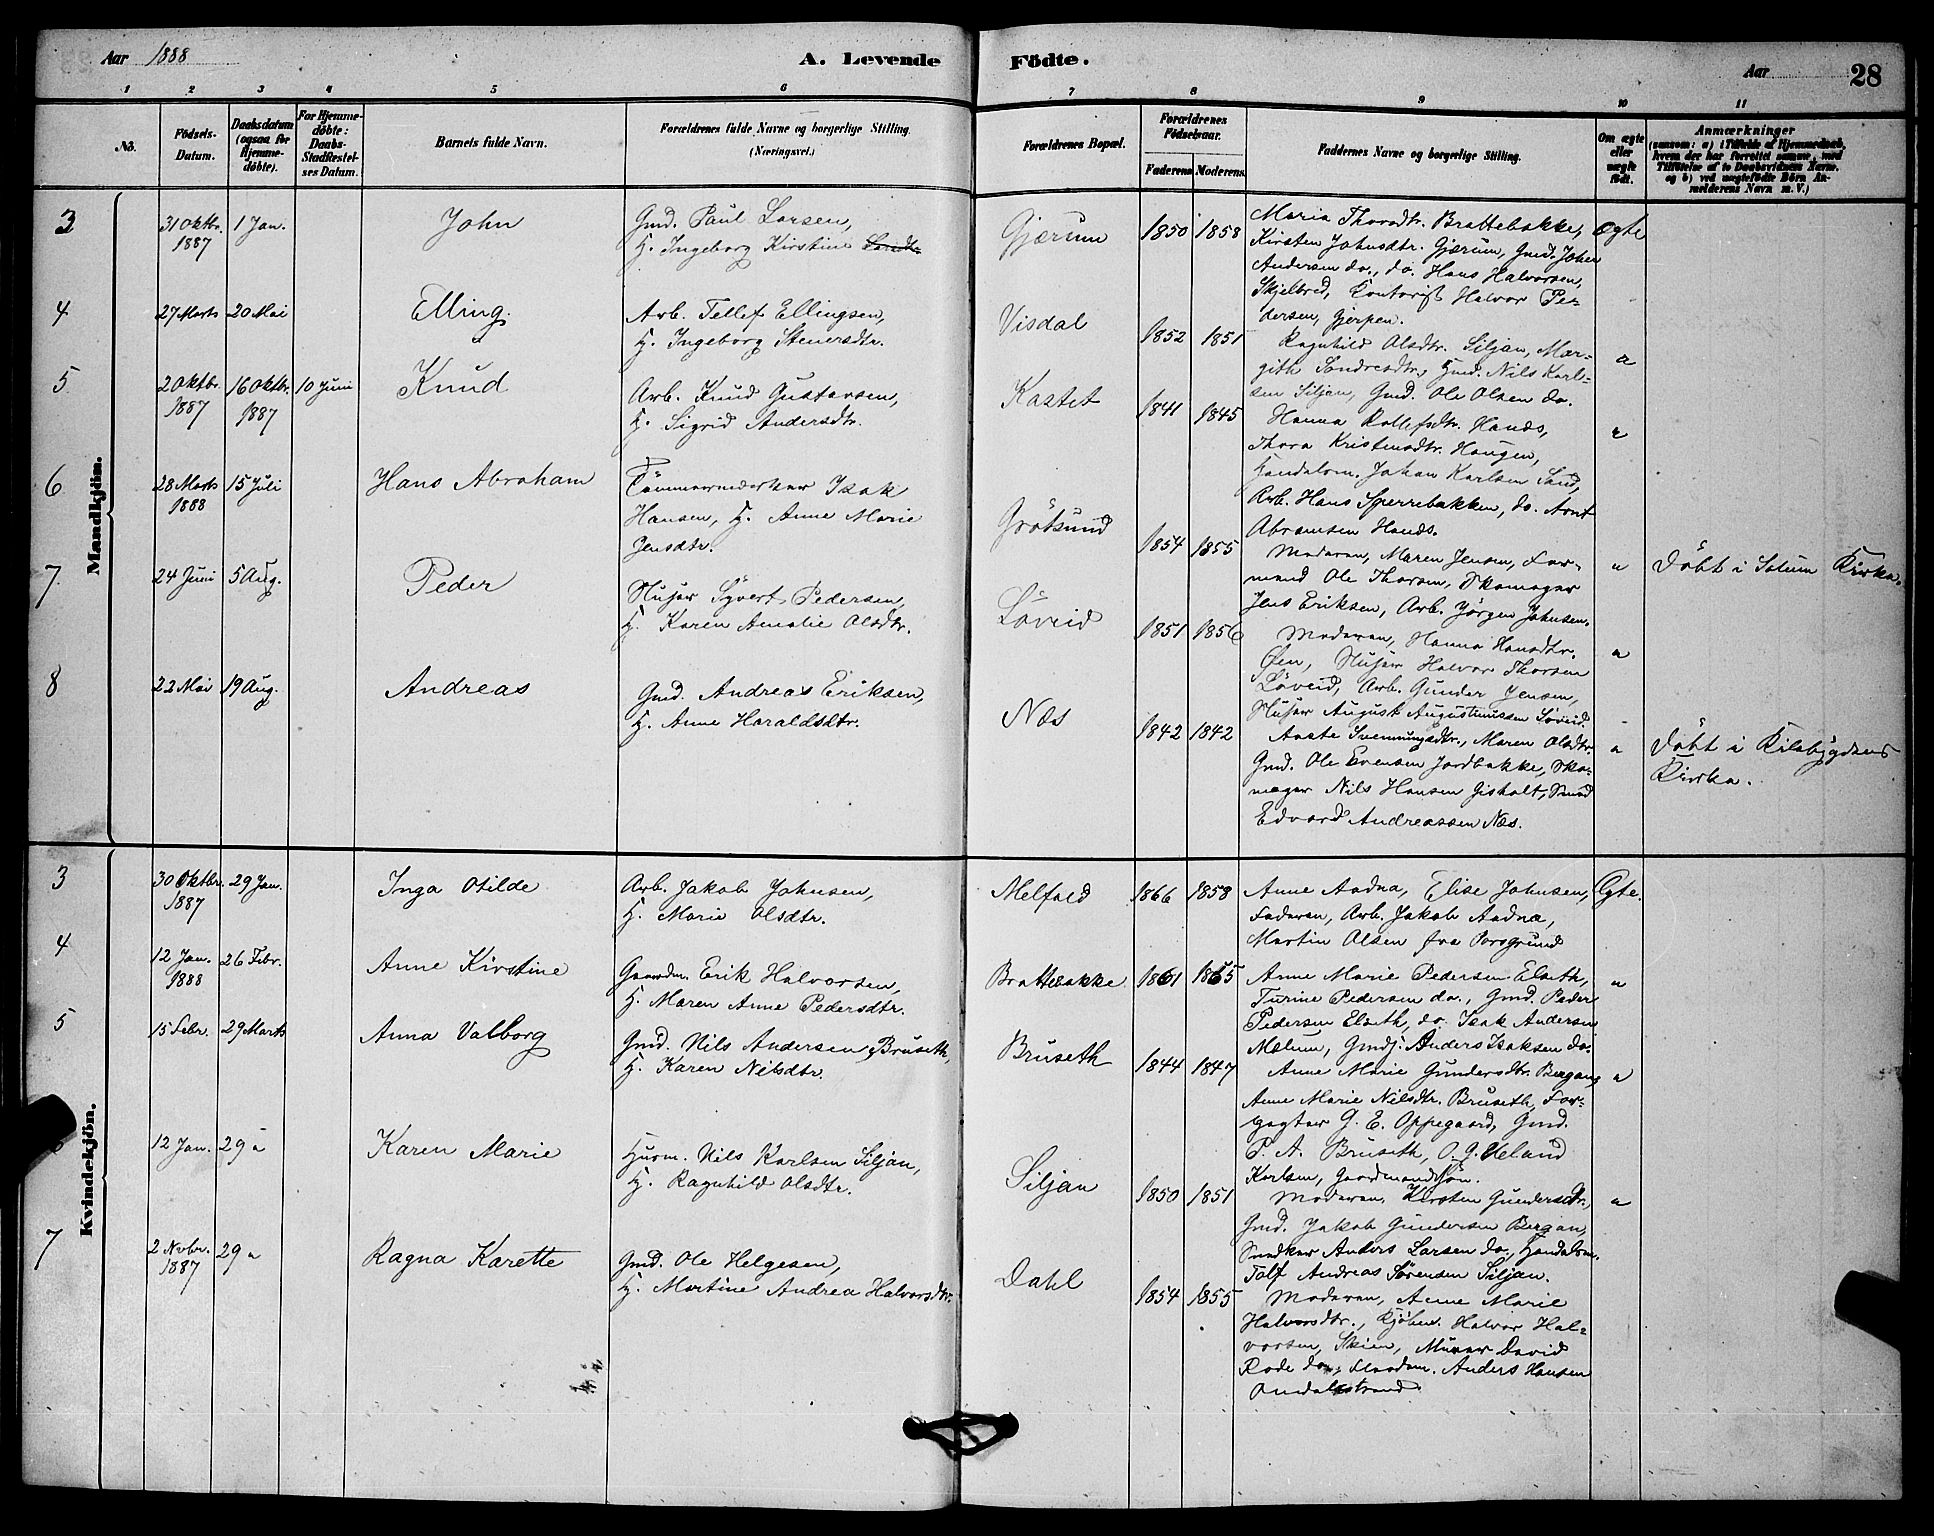 Aar 1888
A. Levende
Födte.
Aar
28
1 2 3 4 5 6
7 8 9 10 11
No.
Födsels-
Datum.
Daabsdatum
(ogsaa for
Hjemme-
döbte).
For Hjemme-
döbte:
Daabs-
Stadfæstel-
ses Datum.
Barnets fulde Navn.
Forældrenes fulde Navne og borgerlige Stilling.
(Næringsvei.)
Forældrenes Bopæl.
Forældrenes
Födselsaar.
Faderens Moderens.
Faddernes Navne og borgerlige Stilling.
Om ægte
eller
uægte
födt.
Anmærkninger
(saasom: a) i Tilfælde af Hjemmedaab,
hvem der har forrettet samme, med
Tilföielse af to Daabsvidners Navne,
og b) ved uægtefödte Börn An-
melderens Navn m. V.)
Mandkjön.
3
31 Oktbr.
1887
1 Jan.
John
Gmd. Paul Larsen,
H. Ingeborg Kirstine
Gjærum
1850 1858
Maria Thorsdtr. Brattebakke,
Kirsten Johnsdtr. Gjærum, Gmd. Johan
Andersen do., do. Hans Halvorsen,
Skjelbred, Kontorist Halvor Pe-
dersen, Gjerpen.
Ægte
4
27 Marts
20 Mai
Elling.
Arb. Tellef Ellingsen,
H. Ingeborg Stenersdtr.
Visdal
1852 1851
Ragnhild Olsdtr. Siljan, Mar-
gith Sondresdtr., Husm. Nils Karl-
sen Siljan, Gmd. Ole Olsen do.
"
5
2 Oktbr.
1887
16 Oktbr.
1887
10 Juni
Knud
Arb. Knud Gustavsen,
H. Sigrid Andersdtr.
Kastet
1841 1845
Hanna Rollefsdtr. Hanes,
Thora Kristensdtr. Haugen,
Handelsm. Johan Karlsen Sand,
Arb. Hans Sperrebakken, do. Arnt
Abramsen Hanes.
"
6
28 Marts
1888
15 Juli
Hans Abraham
Tömmermerker Isak
Hansen, H. Anne Marie
Jensdtr.
Grötsund
1854 1855
Moderen, Maren Jensen, For-
mand Ole Thorsen, Skomager
Jens Eriksen, Arb. Jörgen Johnsen.
"
Döbt i Solum Kirke.
7
24 Juni
5 Aug.
Peder
Husar Syvert Pedersen,
H. Karen Amalie Olsdtr.
Löveid
1851 1856
Moderen, Hanna Hansdtr.
Öen, Husar Halvor Thorsen
Löveid, Arb. Gunder Jensen,
Husar August Augustinussen Löveid.
"
8
22 Mai
19 Aug.
Andreas
Gmd. Andreas Eriksen,
H. Anne Haraldsdtr.
Næs
1842 1842
Aaste Svennungsdtr., Maren Olsdtr.
Gmd. Ole Evensen Jordbakke, Sko-
mager Nils Hansen Gisholt, Smed
Edvard Andreassen Næs.
"
Döbt i Kilebygdens
Kirke.
Kvindekjön.
3
30 Oktbr.
1887
29 Jan.
Inga Otilde
Arb. Jakob Johnsen,
H. Marie Olsdtr.
Melfald
1866 1858
Anne Aadna, Elise Johnsen,
Faderen, Arb. Jakob Aadna,
Martin Olsen fra Porsgrund
Ægte.
4
12 Jan.
1888
26 Febr.
Anne Kirstine
Gaardm. Erik Halvorsen,
H. Maren Anne Pedersdtr.
Brattebakke
1861 1865
Anne Marie Pedersen Elseth,
Turine Pedersen do., Gmd. Peder
Pedersen Elseth, do. Isak Andersen
Mælum, Gmdj. Anders Isaksen do.
"
5
15 Febr.
29 Marts
Anna Valborg
Gmd. Nils Andersen Bruseth,
H. Karen Nilsdtr.
Bruseth
1844 1847
Anne Marie Gundersdtr. Bergan,
Anne Marie Nilsdtr. Bruseth, For-
pagter G. E. Oppegaard, Gmd.
P. A. Bruseth, O. G. Ueland
Karlsen, Gaardmandssön.
"
12 Jan.
29 "
Karen Marie
Husm. Nils Karlsen Siljan,
H. Ragnhild Olsdtr.
Siljan
1850 1851
Moderen, Kirsten Gundersdtr.,
Gmd. Jakob Gundersen Bergan,
Snedker Anders Larsen do., Handelsm.
Tolf Andreas Sörensen Siljan.
"
7
2 Novbr.
1887
29 "
Ragna Karette
Gmd. Ole Helgesen,
H. Martine Andrea Halvorsdtr.
Dahl
1854 1855
Moderen, Anne Marie
Halvorsdtr., Kjöbm. Halvor Hal-
vorsen, Skien, Murer David
Rode do., Anders Hansen
Omdalsstrand.